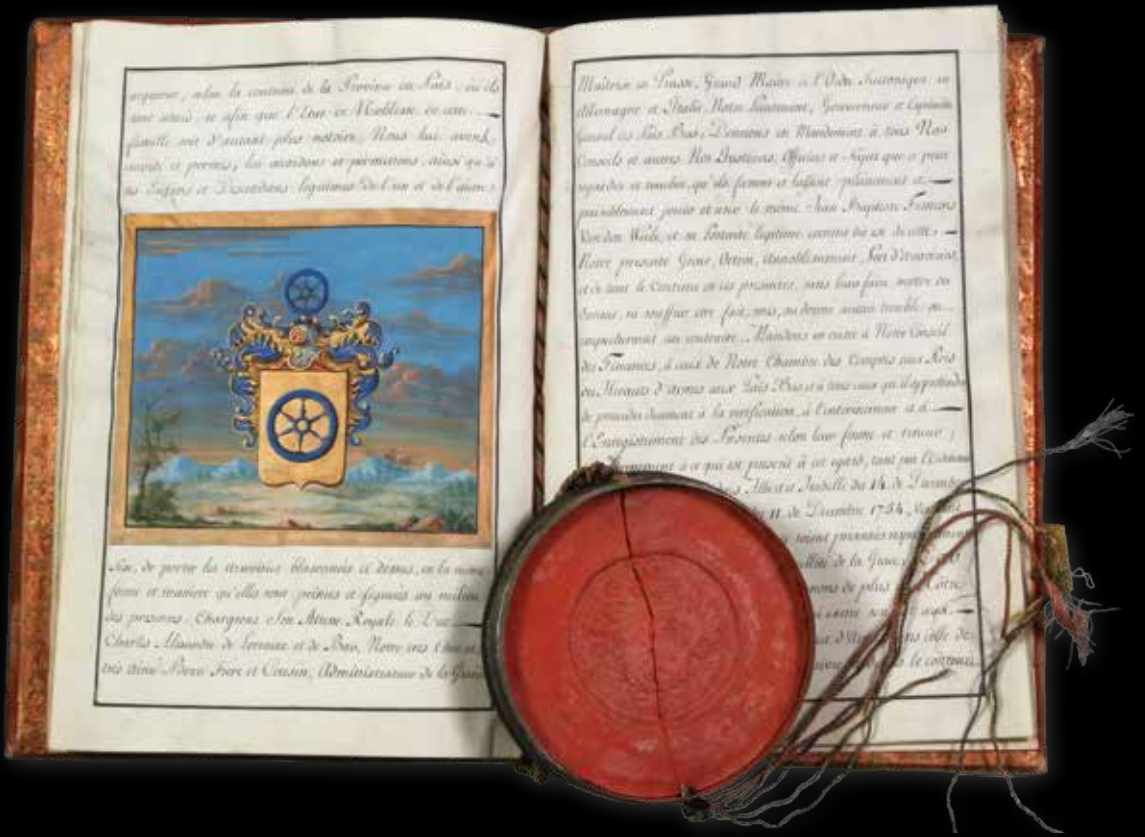 acquerir, selon la coutume de la Province ou Païs, où ils
sont situés, et afin que l'Etat de Noblesse de cette
famille soit d'autant plus notoire, Nous lui avons
accordé et permis, lui accordons et permettons, ainsi qu'à
ses Enfans et Descendans légitimes de l'un et de l'autre
Sexe, de porter les Armoiries blasonnées ci dessus, en la même
forme et manière qu'elles sont peintes et figurées au milieu
des presentes. Chargeons Son Altesse Royale le Duc
Charles Alexandre de Lorraine et de Bar, Notre très Cher et
très Aimé Beau Frere et Cousin, Administrateur de la Grande
Maitrise en Prusse, Grand Maitre de l'Ordre Teutonique en
Allemagne et Italie, Notre Lieutenant, Gouverneur et Capitaine
General des Païs Bas, Donnons en Mandement à tous Nos
Conseils et autres Nos Justiciers, Officiers et Sujets que ce peut
regarder et toucher, qu'ils fassent et laissent pleinement et
paisiblement jouir et user le même Jean Baptiste François
Van den Wiele, et sa Posterité légitime comme dit est de cette
Notre presente Grace, Octroi, Annoblissement, Port d'Armoiries,
et de tout le Contenu en ces presentes, sans leur faire, mettre ou
donner, ni souffrir etre fait, mis, ou donné aucun trouble ou
empechement au contraire. Mandons en outre à Notre Conseil
des Finances, à ceux de Notre Chambre des Comptes aux Rois
ou Herauts d'Armes aux Païs Bas et à tous ceux qu'il appartiendra
de proceder dument à la verification, à l'interinement et à
l'Enregistrement des Presentes selon leur forme et teneur,
à ce qui est prescrit à cet egard, tant par l'
Albert et Isabelle du 14. de Decembre
11. de Decembre 1754.
soient presentées
de la Grace,
de plus
le contenu